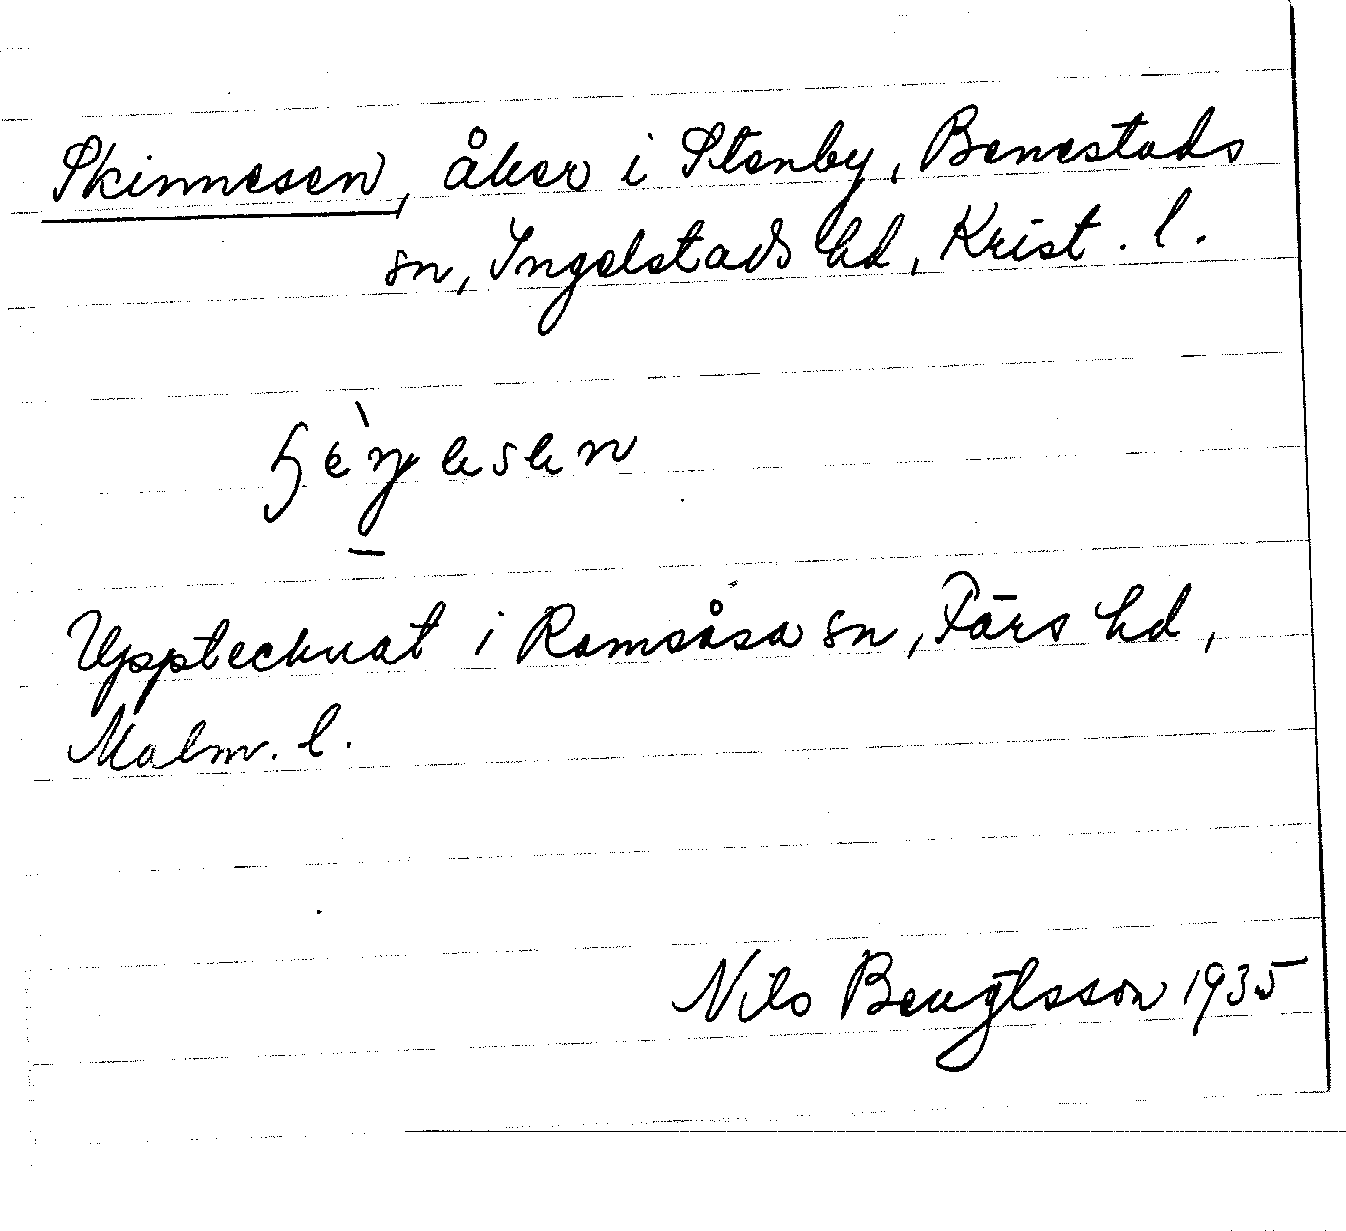 Skinnesen, åker i Stenby, Benestads
sn, Ingelstads hd, Krist. l.
Upptecknat i Ramsåsa sn, Färs hd,
Malm. l.
Nils Bengtsson 1935